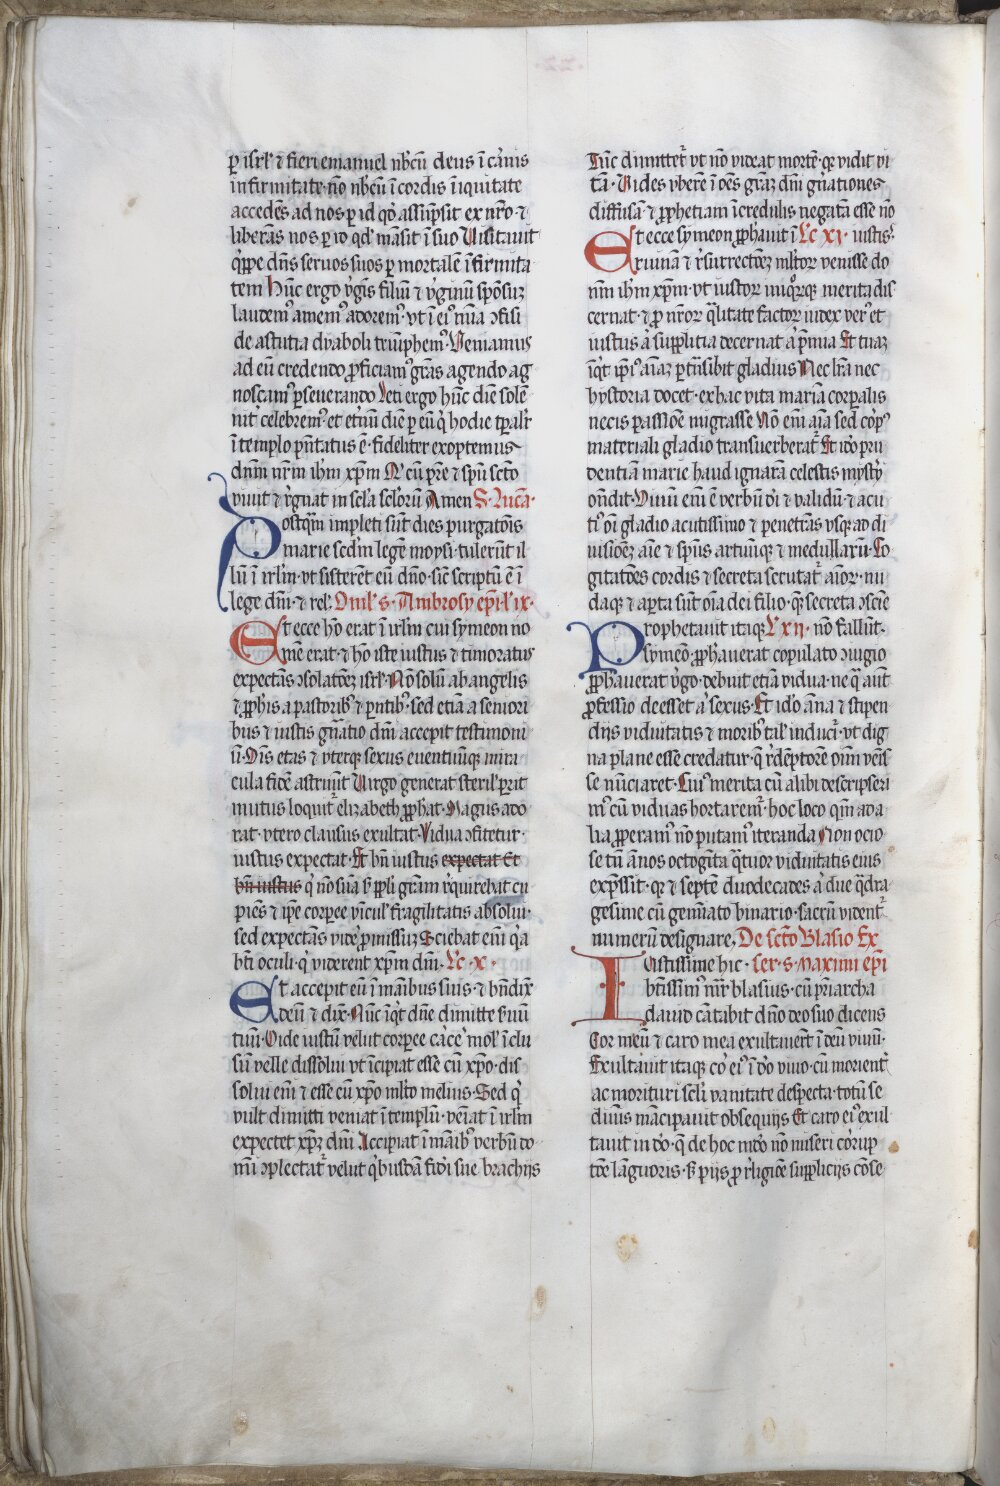 ꝑ isrl' ⁊ fieri emanuel nb'cū deus ī carnis
infirmitate· nō nb'cū ī cordis īiquitate
accedēs ad nos ꝑ id qd' assūpsit ex nr̄o· ⁊
liberās nos ꝑ id qd' māsit ī suo Uisitauit
q̄ppe dn̄s seruos suos ꝑ mortalē īfirmita
tem Hūc ergo v̓gīs filiū ⁊ v̓ginū spōsuꝫ
laudem᷒ amem᷒ adorem᷒· vt ī ei᷒ noīa ꝯfisi
de astutia dyaboli triūphem᷒· Ueniamus
ad eū credendo ꝓficiam᷒ grās agendo ag
noscam᷒ ꝑseuerando Leti ergo hūc diē solē
nit' celebrem᷒· et et'nū diē ꝑ eū q̇ hodie tꝑalr̄
ī templo pn̄tatus ē· fideliter exoptemus
dn̄m nr̄m ih'm xp̄m Q' cū pr̄e ⁊ sp̄u sc̄to
viuit ⁊ r̓gnat in sc̄la sc̄lorū Amen S· Luca·
Postq̄m impleti sūt dies purgatōis
marie scd'm legē moysi· tulerūt il
lū ī irl'm· vt sisterēt eū dn̄o· sic̄ scriptū ē ī
lege dn̄i· ⁊ rel'. Oml's· Ambrosy ep̄i· l' ix·
Et ecce hō erat ī irl'm cui symeon no
mē erat· ⁊ hō iste iustus ⁊ timoratus
expectās ꝯsolatōeꝫ isrl'· Nō solū ab angelis
⁊ ꝓph'is a pastorib᷒ ⁊ parntib᷒· sed etiā a seniori
bus ⁊ iustis gn̄atio dn̄i accepit testimoni
ū· Oīs etas ⁊ vterqꝫ sexus euentuūqꝫ mira
cula fidē astruūt Uirgo generat steril' parit
mutus loquit' elizabeth ꝓphat· Magus ado
rat· vtero clausus exultat· Vidua ꝯfitetur·
iustus expectat· Et bn̄ iustus expectat Et
bn̄ iustus q̇ nō suā s̓ ppl'i grām r̓quirebat cu
piēs ⁊ ip̄e corpee vīcul' fragilitatis absolui·
sed expectās vide' ꝓmissuꝫ Sciebat enī q̇a
bt̄i oculi· q̇ viderent xp̄m dn̄i. Lc· x·
Et accepit eū ī manibus suis· ⁊ bn̄dix̄
deū ⁊ dix̄· Nūc īq̇t dn̄e dimitte s̓uū
tuū· Uide iustū velut corpee ca'ce' mol' īclu
sū velle dissolui vt īcipiat esse cū xp̄o· dis
solui eni ⁊ esse cū xp̄o ml'to melius· Sed q̇
vult dimitti veniat ī templū· veīat ī irl'm
expectet xp̄ꝫ dn̄i Accipiat ī māib᷒ verbū do
mī ꝯplectat' velut q̇busdā fidei sue brachijs
Tūc dimittet' vt nō videat mortē· qꝛ vidit vi
tā· Uides vberē ī oēs grāꝫ dn̄i gn̄ationes
diffusā· ⁊ ꝓphetiam īcredulis negatā esse nō
Et ecce symeon ꝓphauit ī Lc xi· iustis·
ruinā ⁊ r̓surrectōeꝫ ml'toꝝ venisse do
nm̄ ih'm xp̄m· vt iustoꝝ iniq̇oꝝqꝫ merita dis
cernat· ⁊ ꝓ nr̄oꝝ q̄litate factoꝝ iudex ver᷒ et
iustus a' supplitia decernat a' p̄mia Et tuaꝫ
īq̇t ip̄i᷒ aīaꝫ ꝑtn̄sibit gladius Nec l'ra nec
hystoria docet· ex hac vita mariā corꝑalis
necis passiōe migrasse Nō enī aīa sed corp᷒
materiali gladio transuerberat' Et ideo pru
dentiā marie haud ignarā celestis mystȳ
ondit· Uiuū enī ē verbū d'i ⁊ validū· ⁊ acu
ti᷒ oī gladio acutissimo ⁊ penetrās vsqꝫ ad di
uisiōeꝫ aīe ⁊ sp̄us artuūqꝫ ⁊ medullarū· Co
gitatōes cordis ⁊ secreta scrutat' aīoꝝ· nu
daqꝫ ⁊ aꝑta sūt oīa dei filio· q̄ secreta ꝯsciē
Prophetauit itaqꝫ L xij· nō fallūt·
symeō· ꝓphauerat copulato ꝯiugio
ꝓphauerat v̓go· debuit etiā vidua· ne q̄ aut
ꝓfessio deesset a' sexus· Et ido' āna ⁊ stipen
dijs viduitatis ⁊ morib᷒ tal' induci'· vt dig
na plane esse credatur· q̄ r̓dēptorē oīm venis
se nūciaret· Cui᷒ merita cū alibi descripseri
m᷒ cū viduas hortarem᷒· hoc loco qm̄ ad a
lia ꝓperam᷒ nō putam᷒ iteranda Non ocio
se tn̄ ānos octogīta q̄tuor viduitatis eius
exp̄ssit· qꝛ ⁊ septē duodecades a' due q̄dra
gesime cū gemīato binario· sacrū vident'
numerū designare. De sc̄to Blasio Ex
Iustissime hic· ser· s· Maximi ep̄i
bt̄issim᷒ nr̄ blasius· cū pr̄iarcha
dauid cātabit dn̄o deo suo dicens
Cor meū ⁊ caro mea exultauert̄ ī deū viuū·
Exultauit itaqꝫ co' ei᷒ ī d'o viuo· cū morient'
ac morituri sc̄l'i vanitate despecta· totū se
diuis mācipauit obsequijs Et caro ei᷒ exul
tauit in d'o· q̄ de hoc m̄do nō miseri corup
tōe lāguoris· s̓ pijs ꝓ r̓ligiōe supplicijs cōse